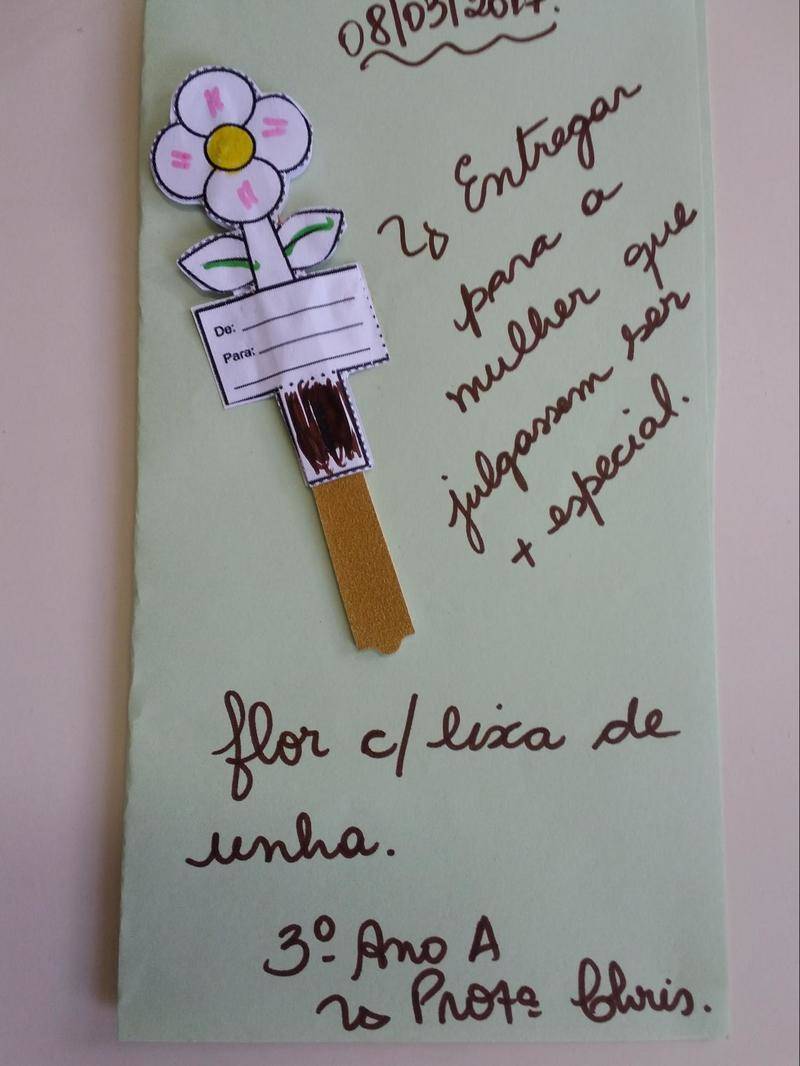 08/03/2017.
Entregar
para a
mulher que
julgassem ser
+ especial.
De:
Para:
flor c/ lixa de
unha.
3º Ano A
Profª Chris.